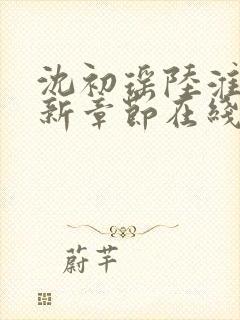 沈初瑶陆淮
新章节在线
蔚芊